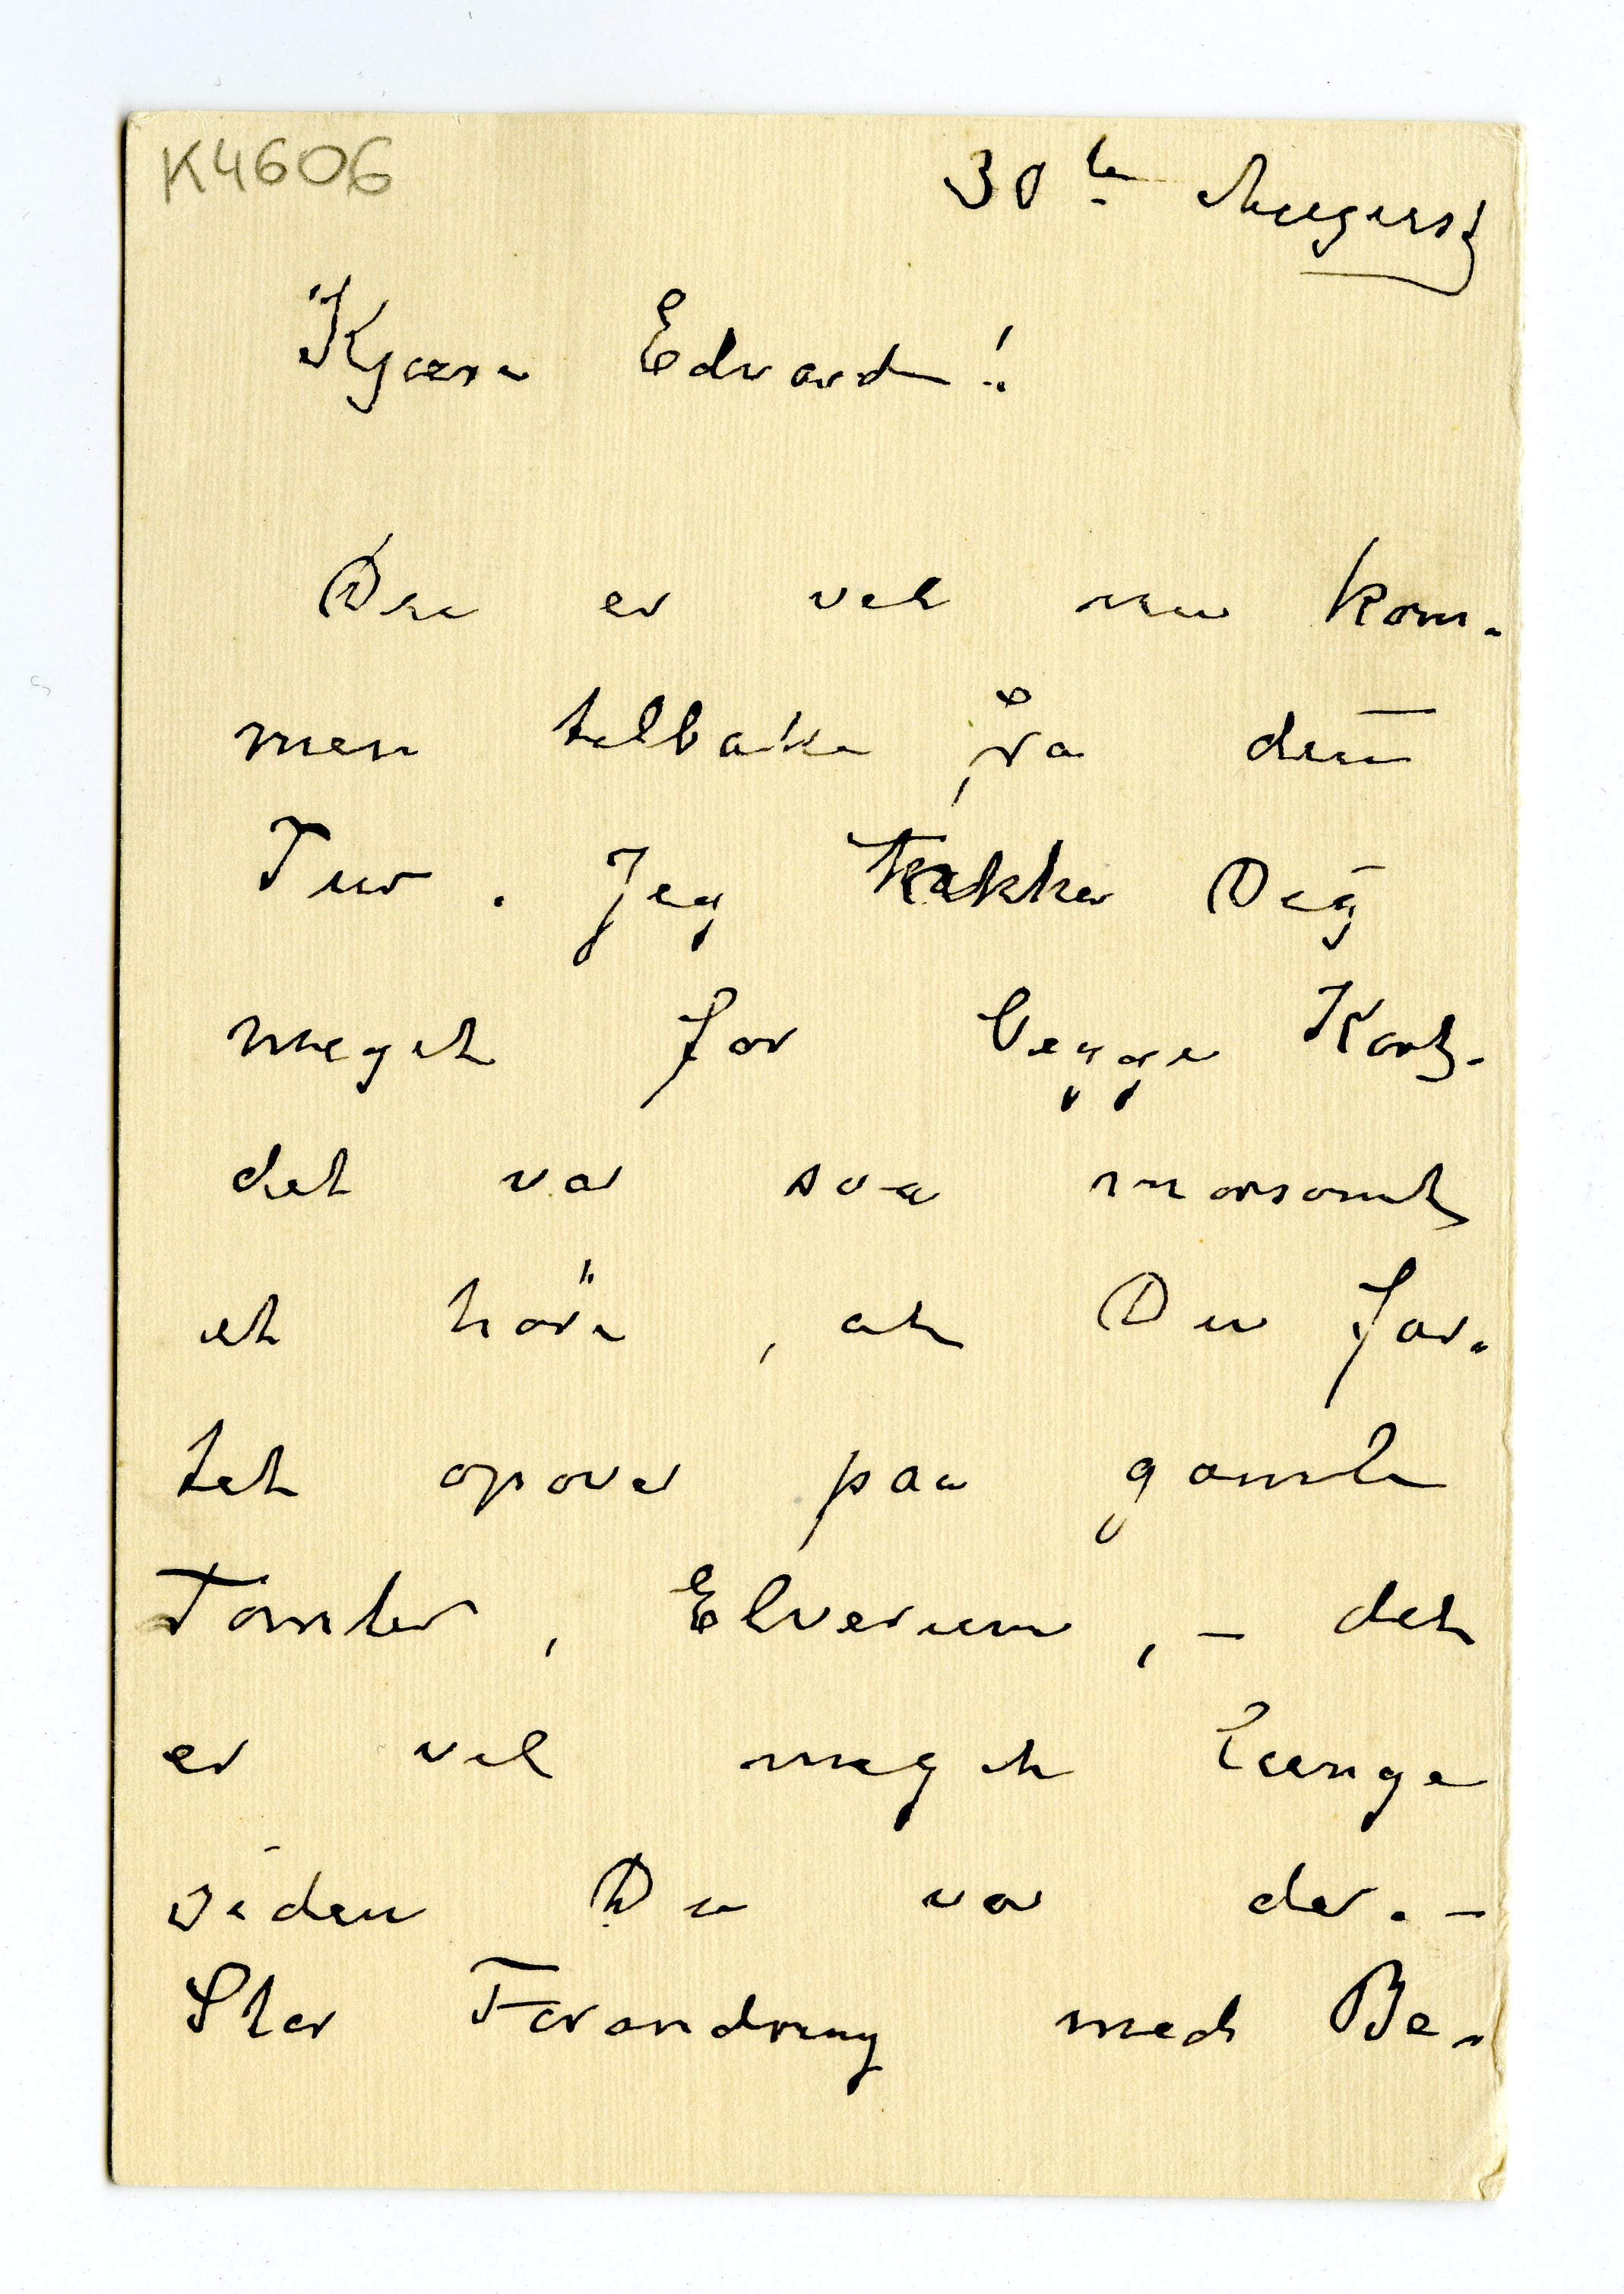 K4606
30te August
Kjære Edvard!
Du er vel nu kom-
men tilbake fra din
Tur. Jeg takker Dig
meget for begge Kort-
det var saa morsomt
at höre, at Du for-
tet opover paa gamle
Tomter, Elverum, – det
er vel meget længe
siden Du var der. –
Stor Forandring med Be-